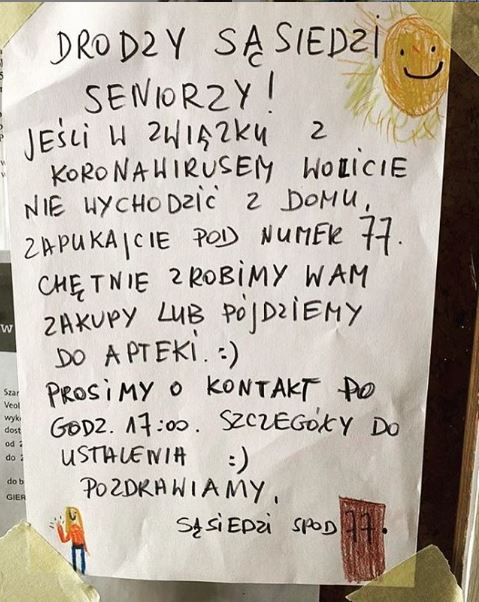 DRODZY SĄSIEDZI
SENIORZY!
JEŚLI W ZWIĄZKU Z
KORONAWIRUSEM WOLICIE
NIE WYCHODZIĆ Z DOMU,
ZAPUKAJCIE POD NUMER 77.
CHĘTNIE ZROBIMY WAM
ZAKUPY LUB PÓJDZIEMY
DO APTEKI. :)
PROSIMY O KONTAKT PO
GODZ. 17:00. SZCZEGÓŁY DO
USTALENIA :)
POZDRAWIAMY,
SĄSIEDZI SPOD 77.
W
Szar
Veol
wyko
dost
od 2
do 2
do b
GIER